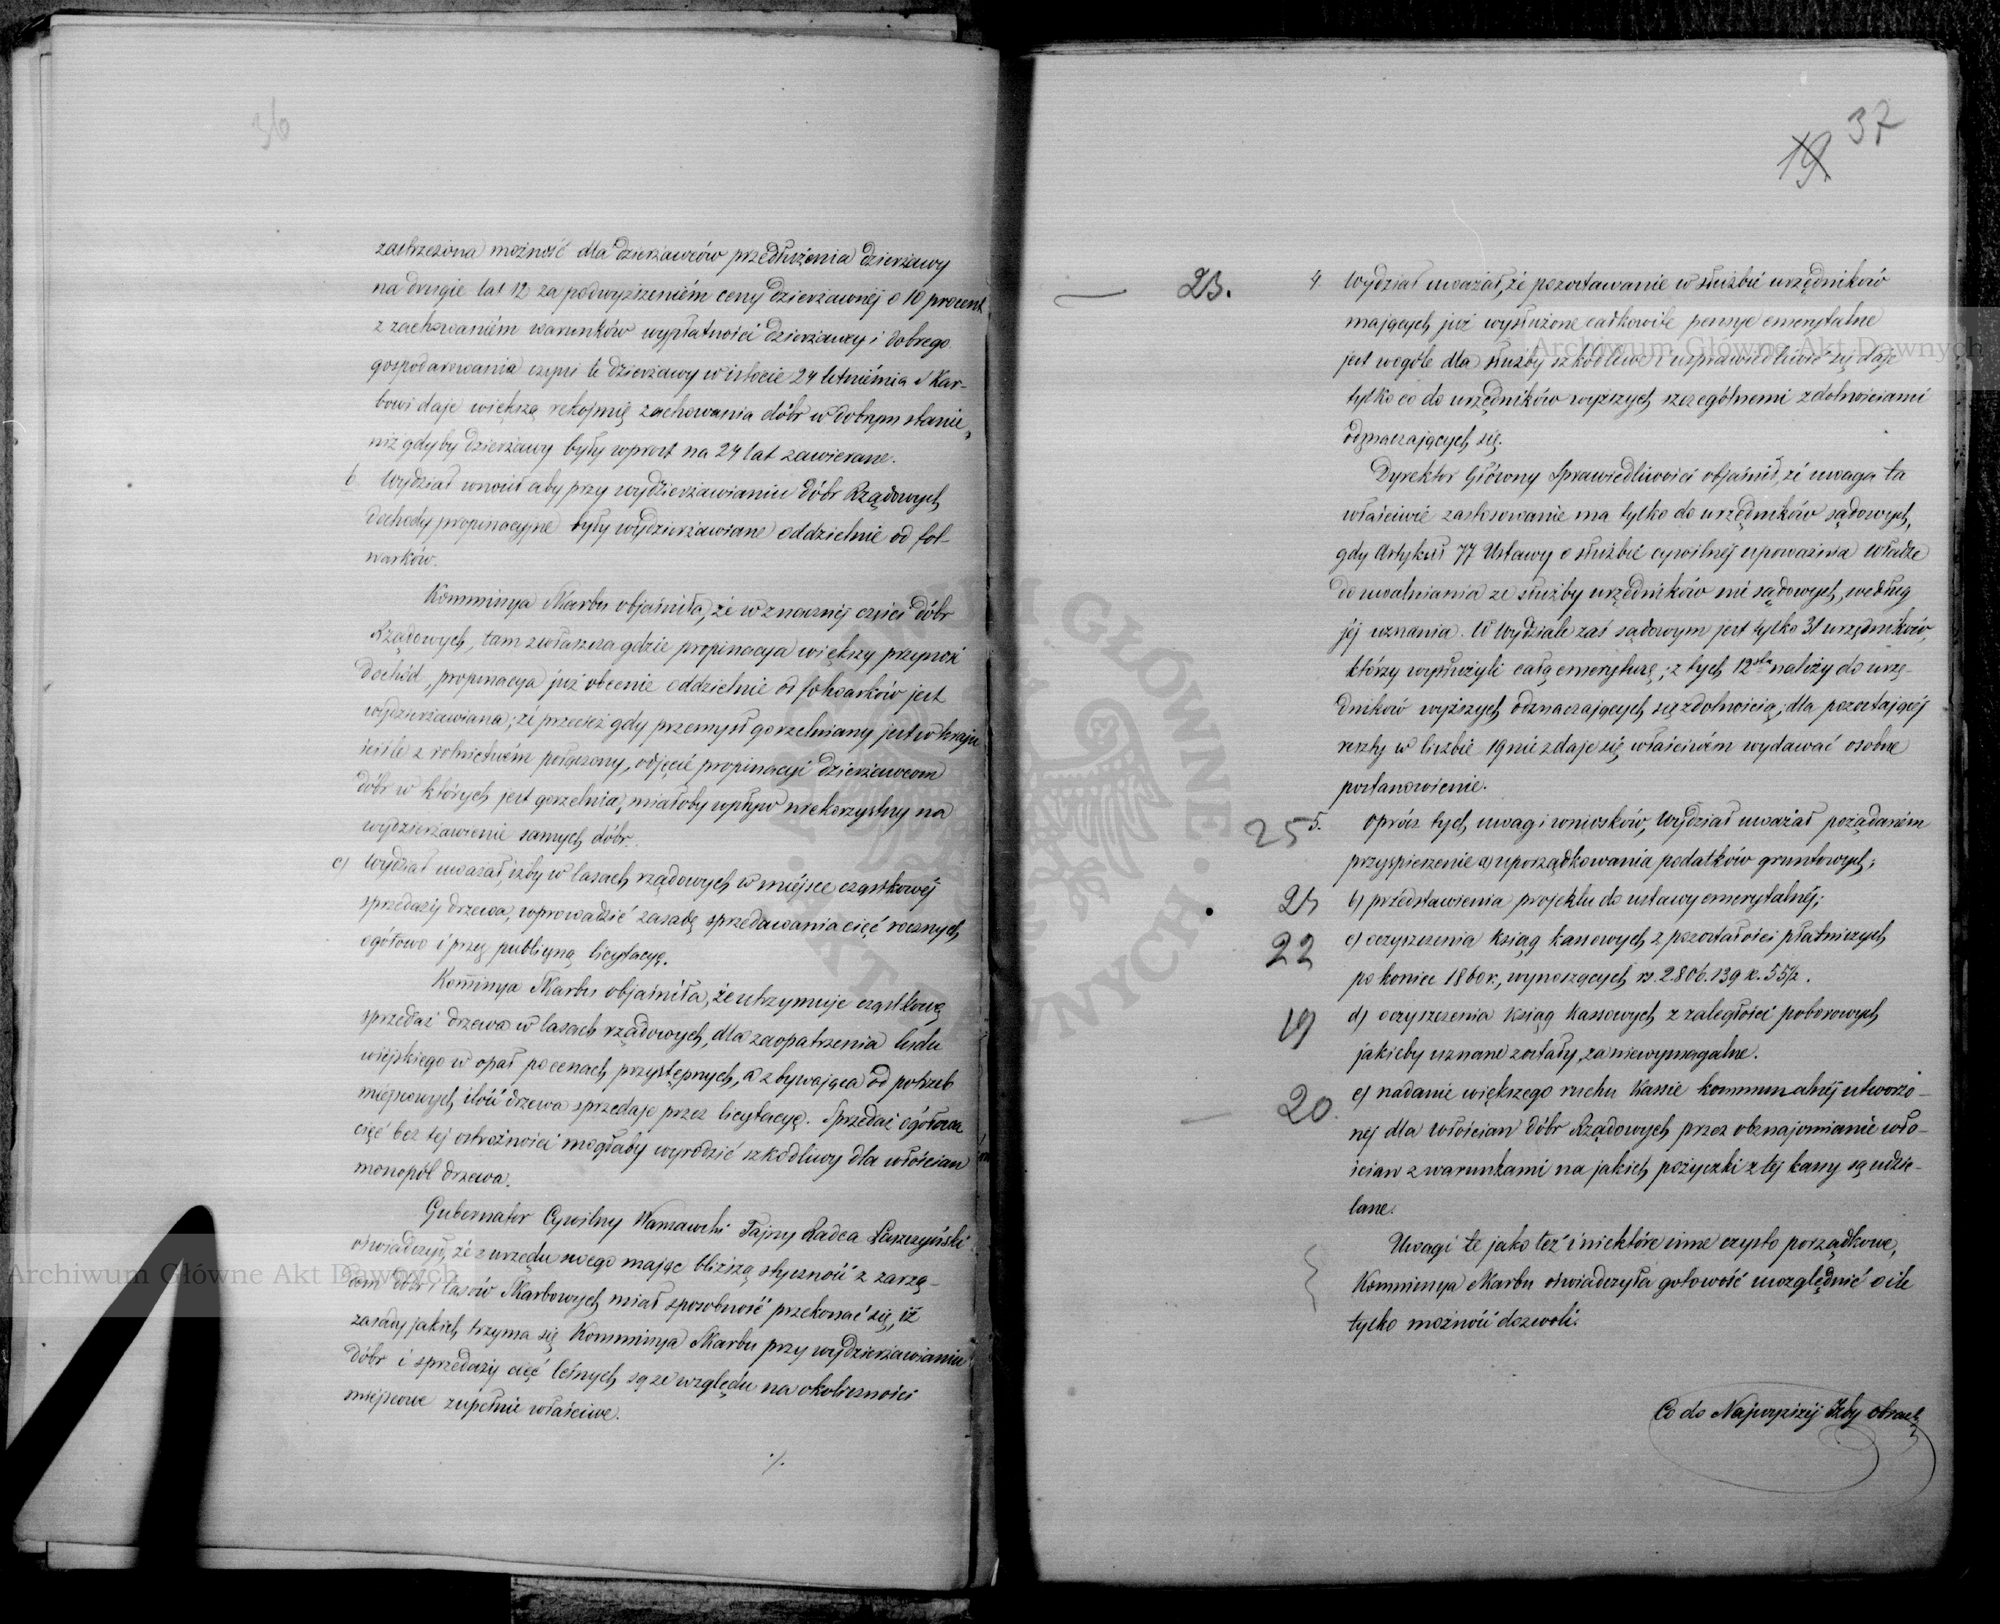 36
zastrzeżona możność dla dzierżawców przedłużenia dzierżawy
na drugie lat 12 za podwyższeniém ceny dzierżawnéj o 10 procent
z zachowaniém warunków wypłatności dzierżawy i dobrego
gospodarowania czyni te dzierżawy w istocie 24 letniémi a Skar-
bowi daje większą rękojmię zachowania dóbr w dobrym stanie,
niż gdyby dzierżawy były wprost na 24 lat zawierane.
b Wydział wnosił aby przy wydzierżawianiu dóbr Rządowych
dochody propinacyjne były wydzierżawiane oddzielnie od fol-
warków.
Kommissya Skarbu objaśniła, że w znacznéj części dóbr
Rządowych, tam zwłaszcza gdzie propinacya większy przynosi
dochód, propinacya już obecnie oddzielnie od folwarków jest
wydzierżawiana; że przecież gdy przemysł gorzelniany jest w kraju
ściśle z rolnictwém połączony, odjęcie propinacyi dzierżawcom
dóbr w których jest gorzelnia, miałoby wpływ niekorzystny na
wydzierżawienie samych dóbr.
c) Wydział uważał, iżby w lasach rządowych w miejsce cząstkowéj
sprzedaży drzewa, wprowadzić zasadę sprzedawania cięć rocznych
ogółowo i przez publiczną licytacyę.
Kommissya Skarbu objaśniła, że utrzymuje cząstkową
sprzedaż drzewa w lasach rządowych, dla zaopatrzenia ludu
wiejskiego w opał po cenach przystępnych, a zbywająca od potrzeb
miejscowych ilość drzewa sprzedaje przez licytacyę. Sprzedaż ogółowa
cięć bez téj ostrożności mogłaby wyrodzić szkodliwy dla włościan
monopol drzewa.
Gubernator Cywilny Warszawski Tajny Radca Łuszczyński
oświadczył, że z urzędu swego mając bliższą styczność z zarzą-
dem dóbr i lasów Skarbowych miał sposobność przekonać się, iż
zasady jakich trzyma się Kommissya Skarbu przy wydzierżawianiu
dóbr i sprzedaży cięć leśnych są ze względu na okoliczności
miejscowe zupełnie właściwe.
./.
37
19.
23. 4. Wydział uważał, że pozostawanie w służbie urzędników
mających już wysłużone całkowite pensye emerytalne
jest wogóle dla służby szkodliwe i usprawiedliwić się daje
tylko co do urzędników wyższych szczególnemi zdolnościami
odznaczających się.
Dyrektor Główny Sprawiedliwości objaśnił, że uwaga ta
właściwie zastosowanie ma tylko do urzędników sądowych,
gdy Artykuł 77 Ustawy o służbie cywilnéj upoważnia Władze
do uwalniania ze służby urzędników nie sądowych, według
jéj uznania. W Wydziale zaś sądowym jest tylko 31 urzędników,
którzy wysłużyli całą emeryturę; z tych 12stu należy do urzę-
dników wyższych odznaczających się zdolnością, dla pozostającéj
reszty w liczbie 19 nie zdaje się właściwém wydawać osobne
postanowienie.
25 5. Oprócz tych uwag i wniosków, Wydział uważał pożądaném
przyspieszenie a) uporządkowania podatków gruntowych;
b) przedstawienia projektu do ustawy emerytalnéj;
22 c) oczyszczenia ksiąg kassowych z pozostałości płatniczych
po koniec 1860 r., wynoszących rs. 2.806.139 k. 55½.
19 d) oczyszczenia ksiąg kassowych z zaległości poborowych
jakieby uznane zostały, za niewymagalne.
20. e) nadanie większego ruchu Kassie kommunalnéj utworzo-
néj dla włościan dóbr Rządowych przez obznajomianie wło-
ścian z warunkami na jakich pożyczki z téj kassy są udzie-
lane.
Uwagi te jako też i niektóre inne czysto porządkowe,
Kommissya Skarbu oświadczyła gotowość uwzględnić o ile
tylko możność dozwoli.
Co do Najwyższéj Izby obrach.
Archiwum Główne Akt Dawnych
Archiwum Główne Akt Dawnych
ARCHIWUM GŁÓWNE AKT DAWNYCH